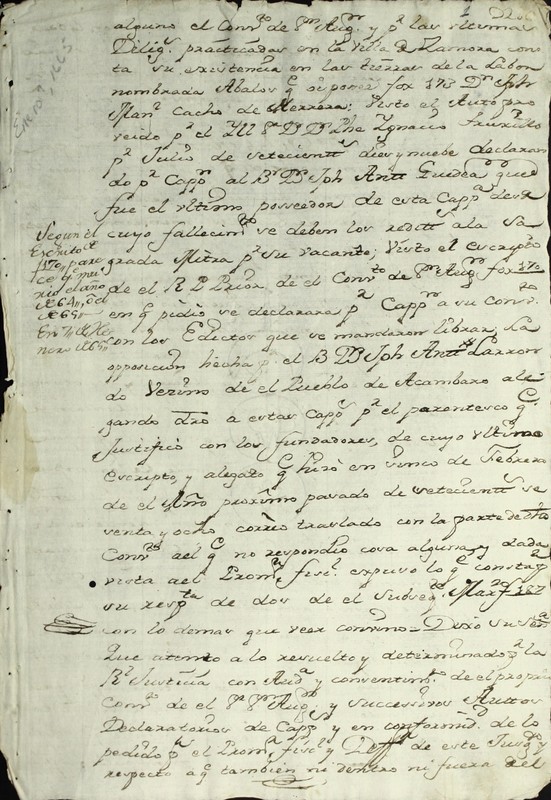 alguno el Conv.to de S.n Aug.n y p.r las ultimas
Dilig.s practicadas en la Villa de Zamora cons
ta su existencia en las tierras de la Labor
nombrada Abalos q.e oi posee fox 173 D.n Jph
Man.l Cacho de Herrera; Visto el Auto pro
veido p.r el Yll S.r D D Phe Ygnacio Truxillo
p.r Julio de setecient.s dies y nuebe declaran
do p.r Capp.n al B.r D Jph Ant.o Guidea que
fue el ultimo posseedor de esta Capp.a desde
cuyo fallecim.to se deben los redit.s a la Sa
grada Mitra p.r su vacante; Visto el escripto
de el R P Prior de el Conv.to de S.n Aug.n fox 170
en q.e pidio se declarara p.r Capp.n a su Conv.to
con los Edictos que se mandaron librar, La
opposicion hecha p.r el B D Jph Ant.o Larron
do Vezino de el Pueblo de Acambaro ale
gando dro a estas Capp.s p.r el parentesco q.e
justificó con los fundadores, de cuyo ultimo
escripto, y alegato q.e hizo en sinco de Febrero
de el Año proximo pasado de setecient.s se
senta y ocho corrio traslado con la parte de dho
Conv.to a el q.e no respondio cosa alguna y dada
vista a el Prom.r fisc.l expuso lo q.e consta p.r
su resp.ta de dos de el subseq.te Marzo f 187
con lo demas que veer convino = Dixo su S.ria
Que atento a lo resuelto y determinado p.r la
R.l Justicia con Aud.a y consentim.to de el propio
Conv.to de el S.r S.n Aug.n y successivos Auttos
Declaratorios de Capp.s y en conformid.d de lo
pedido p.r el Prom.r fisc.l y Deff.r de este Jusg.o y
respecto a q.e tambien ni dentro ni fuera del
Segun el
Escrito de
f 170 pare
ce q.e mu
rio el año
de 64 o el
de 65
En 7 de He
nero de 65
Enero, 1665